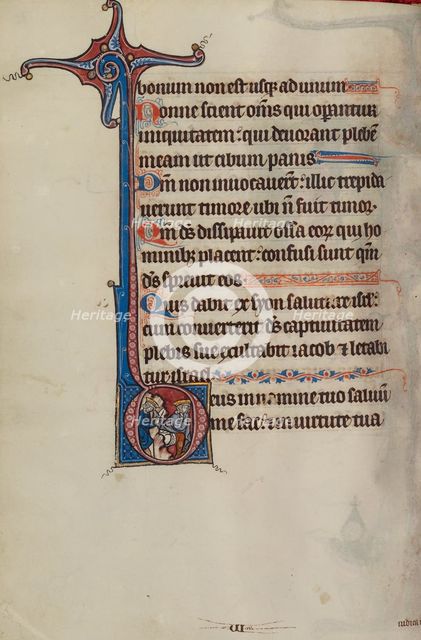 bonum non est usq; ad unum
Nonne scient om̄s qui opantur
iniquitatem: qui deuorant plebē
meam ut cibum panis
Dm̄ non inuocauer̄t: illic trepida
uerunt timore ubi n̄ fuit timor.
Qm̄ ds̄ dissipauit ossa eor̄ qui ho
minibus placent: confusi sunt qm̄
ds̄ spreuit eos
Quis dabit ex syon
cum conuerterit ds̄ captiuitatem
plebis sue exultabit iacob & letabi
tur israel
Deus in nomine tuo saluū
me fac: & in uirtute tua
Heritage
Heritage
Heritage
Heritage
Heritage
Heritage
Heritage